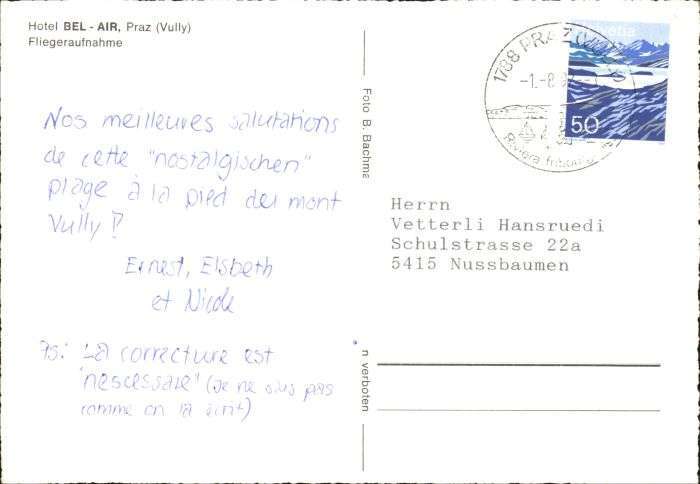 Hotel BEL - AIR, Praz (Vully)
Fliegeraufnahme
Nos meilleures salutations
de cette "nostalgischen"
plage à la pied du mont
Vully!
Ernest, Elsbeth
et Nicole
PS: La correcture est
"nescessaire" (Je ne suis pas
comme on la
Foto B. Bachma
n verboten
1788 PRAZ (VULLY)
-1.-8.
Riviera fribourg
Helvetia
50
Herrn
Vetterli Hansruedi
Schulstrasse 22a
5415 Nussbaumen